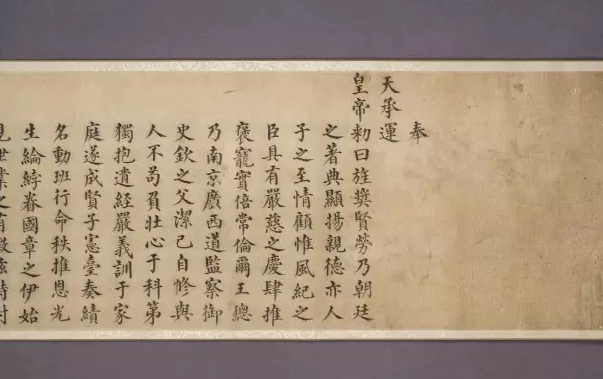 奉
天承運
皇帝勑曰旌奬賢勞乃朝廷
之著典顯揚親德亦人
子之至情顧惟風紀之
臣具有嚴慈之慶肆推
褒寵實倍常倫爾王聰
乃南京廣西道監察御
史欽之父潔己自修與
人不苟負壯心于科第
獨抱遺經嚴義訓于家
庭遂成賢子憲臺奏績
名動班行命秩推恩光
生綸綍眷國章之伊始
世業之有